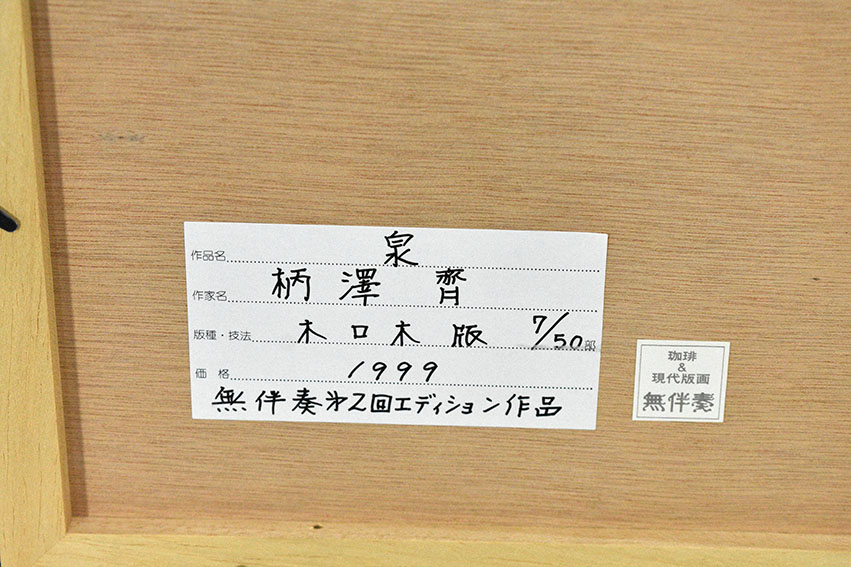 作品名 泉
作家名 柄澤 齊
版種・技法 木口木版 7/50部
価格 1999
無伴奏第2回エディション作品
珈琲
&
現代版画
無伴奏